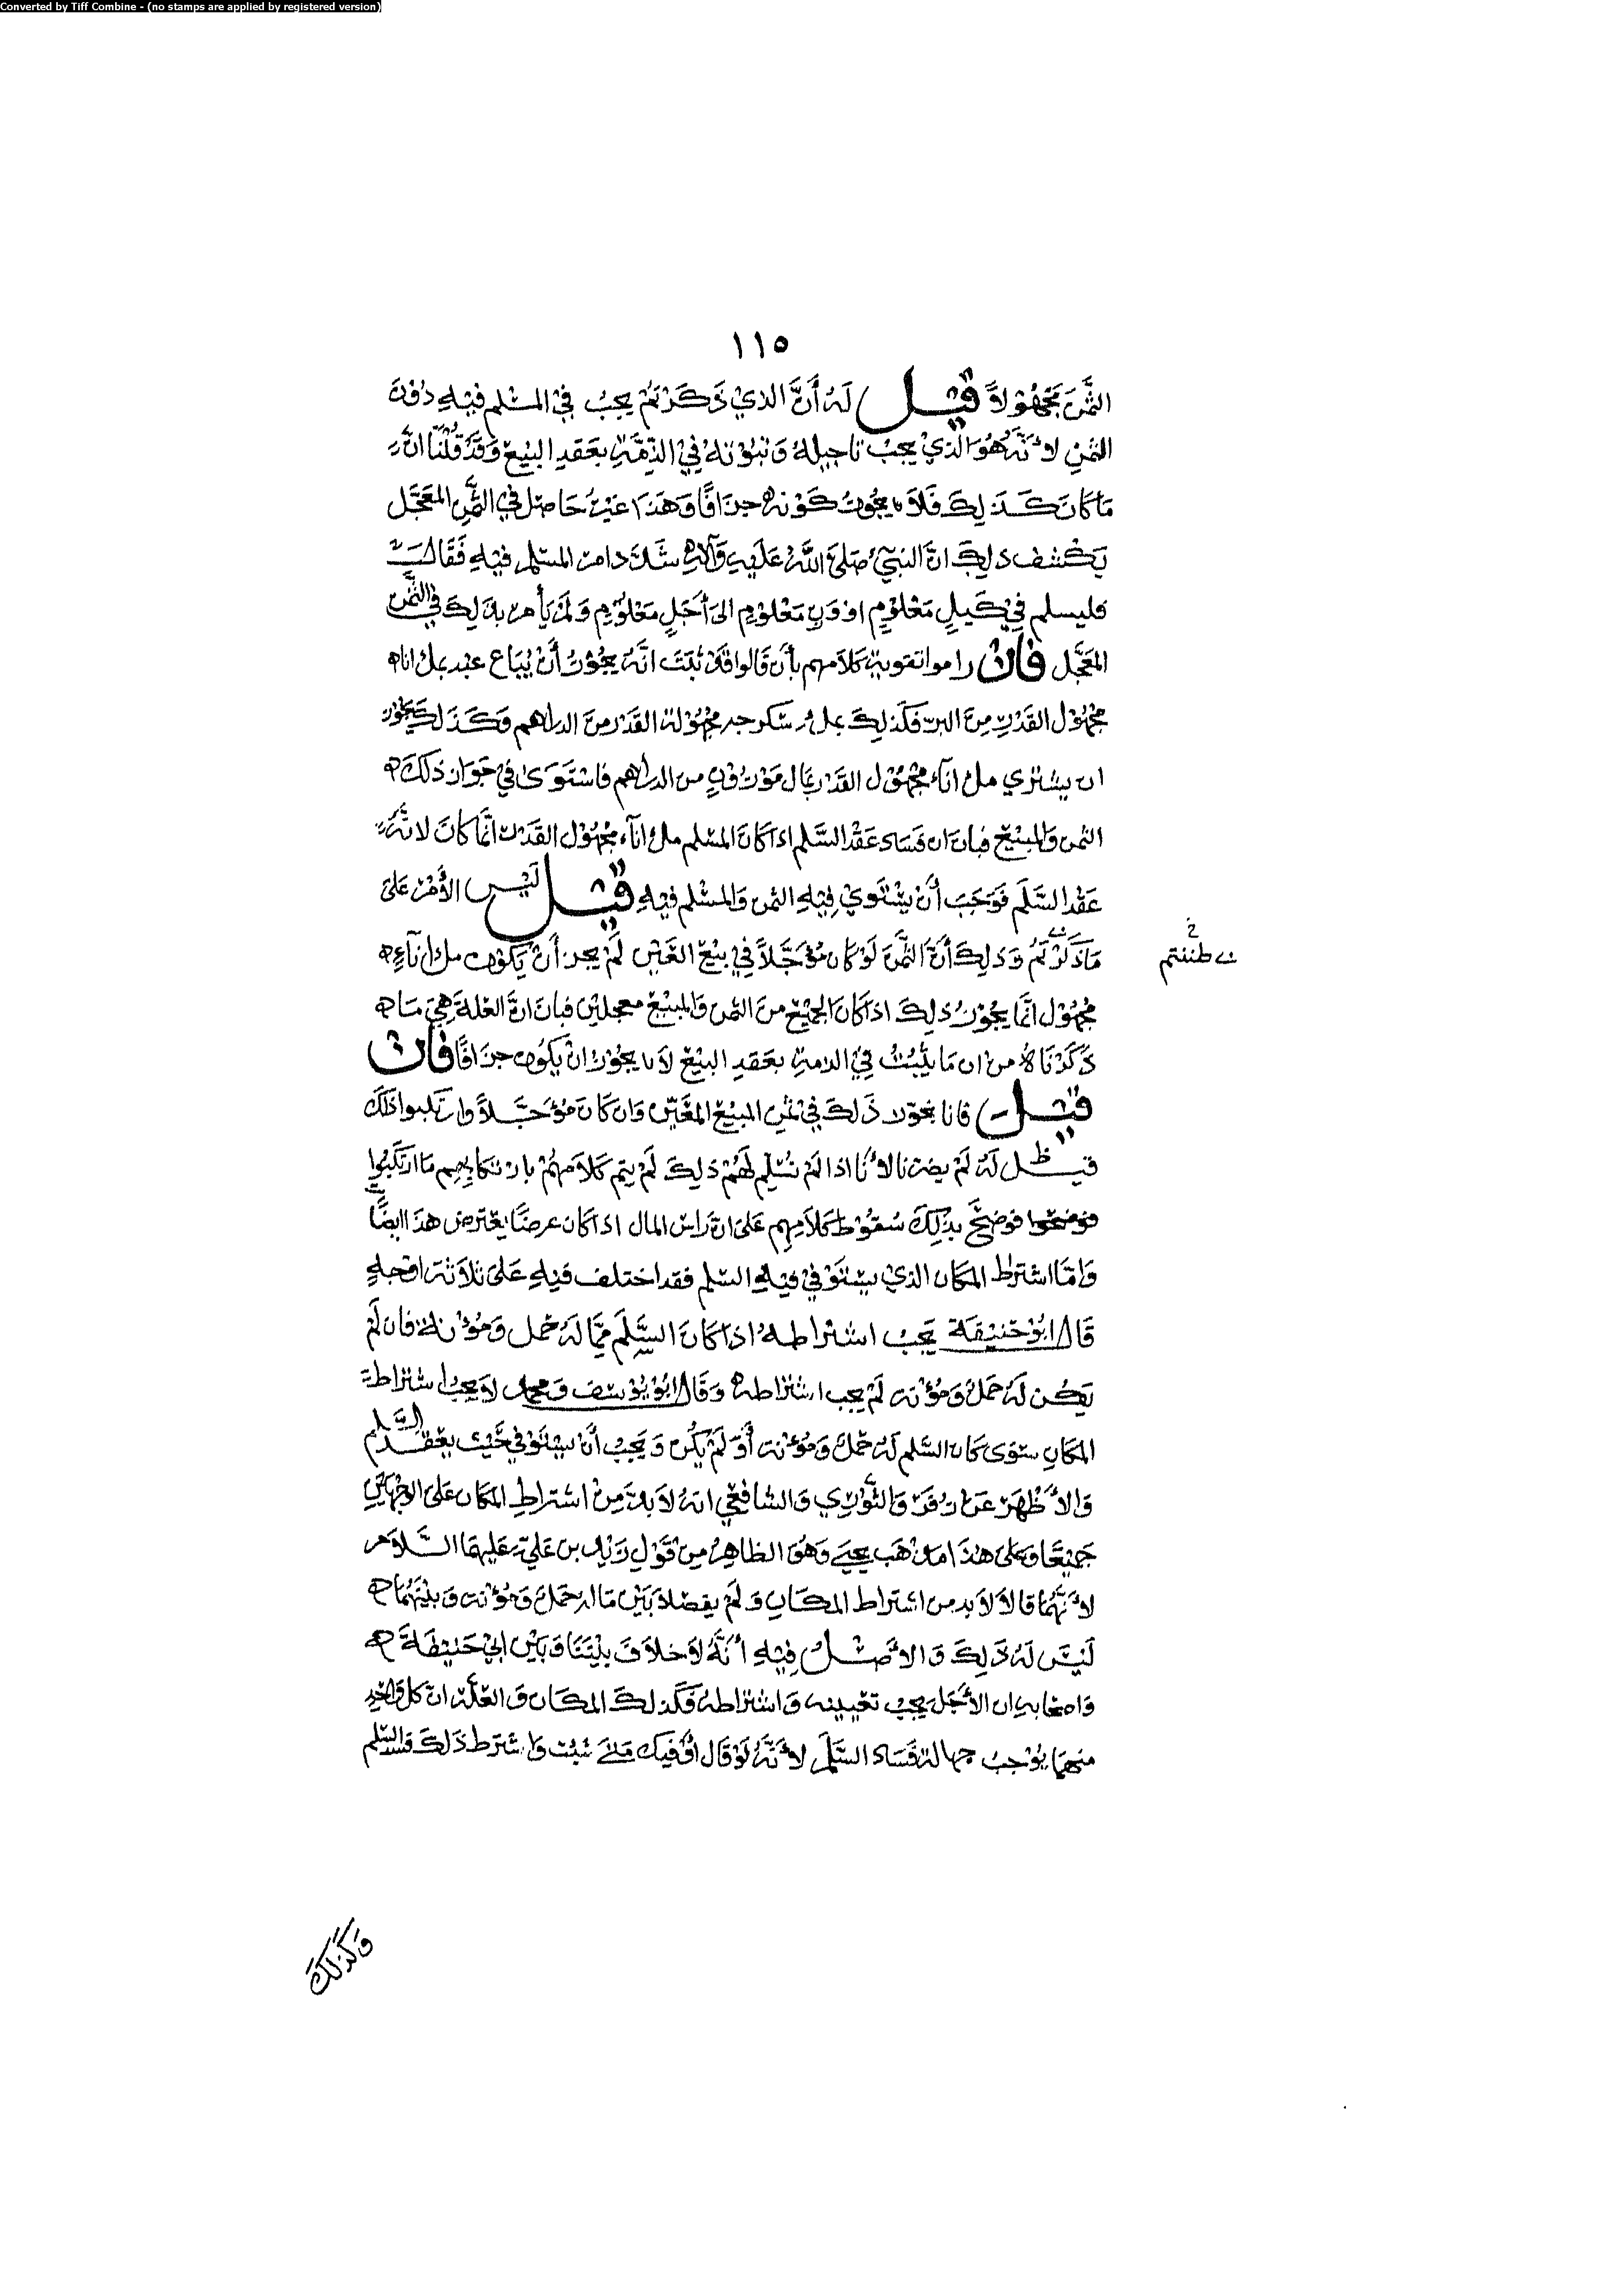 Converted by Tiff Combine - (no stamps are applied by registered version)
١١٥
الثَّمَنَ مَجْهُوْلاً قيل لَهُ أَنَّ الذيْ ذَكَرْتُمْ يجبُ فِي المسْلم فِيْهِ دُوْنَ
الثمنِ لأَنَّهُ هُوَ الذيْ يجبُ تاجيلهُ وَثبُوْتهُ فِيْ الذِّمَّةِ بعَقدِ البَيْعِ وَقَدْ قُلْنَا انَّ
مَا كَانَ كَذَلِكَ فَلاَ يجُوزُ كَوْنه جزَافًا وَهَذَا غَيْرُ حَاصِل فِي الثَّمَنِ المعَجَّل
يَكْشف ذلِكَ انَّ النبيَّ صَلىَ اللَّهُ عَلَيهِ وَآلهِ شَدَّدَ امرَ المسْلم فيْهِ فَقَالَ
فليسلم فِيْ كَيلٍ مَعْلوْمٍ اوْ وَزنٍ مَعْلوْمٍ الىَ أَجَلٍ مَعْلوْمٍ وَلمْ يَأمر بذَلِكَ في الثَّمنِ
المعَجَّل فان راموا تقوية كَلاَمهم بأَن قَالوا قَدْ ثبَتَ انَّهُ يجُوْزُ أَنْ يُبَاع عبد بملء اناء
مجْهُوْل القَدْرِ مِنَ البرّ فكَذلِكَ بملء سكرجه مجْهُوْلة القَدْر منَ الدراهم وَكَذَلكَ يَجُوْز
ان يشتري ملء انآء مجْهُوْل القَدْر بمال مَوْزُوْنٍ من الدراهم فاسْتَوَىَ فِيْ جَوَاز ذَلكَ
الثمن وَالمبيْع فبان ان فَسَاد عَقْد السَّلم اذا كَانَ المسْلم ملء انآء مجْهُوْل القَدْر انَّما كَانَ لانَّهُ
عَقْد السَّلَم فَوَجَبَ أَنْ يسْتَوي فِيْهِ الثمن وَالمسْلم فيْهِ قيل لَيْس الأَمْرُ عَلىَ
مَا ذَكَرْتمْ وَذلِكَ أَنَّ الثَّمَنَ لَوْ كَانَ مُؤَجَّلاً فِيْ بيْعِ العَيْنِ لَمْ يجز أَنْ يَكُوْن ملء انآءٍ
ظننتم
مجْهُوْل انَّما يجُوْزُ ذلِكَ اذا كَانَ الجَميْع منَ الثمن وَالمبيْع معجلين فبان انَّ العلةَ هِيَ مَا
ذَكَرْنَاهُ من ان مَا يَثْبتُ فِيْ الذمةِ بعَقدِ البَيْعِ لاَ يجُوْز انْ يَكُوْن جزَافًا فان
قيل فانا نجوّز ذَلِكَ فِيْ ثمَنِ المبيْع المعَيّنِ وَان كَانَ مُؤَجَّلاً وارتكبوا ذَلكَ
قيل لَهُ لَمْ يضرنا لأَنا اذا لَمْ نُسَلِّم لَهُمْ ذلِكَ لَمْ يتم كَلاَمهُمْ بارتكابهِم مَا ارتَكَبُوا
فوضَحَ بذَلِكَ سُقوْط كَلاَمِهم عَلىَ انَّ رَاسَ المال اذا كَان عرضًا يعْترض هذَا ايضًا
وَامَّا اشتراط المكَان الذيْ يسْتَوْفي فيْهِ السَّلم فقد اختلف فيْهِ عَلىَ ثلاَثة اوْجهٍ
قَالَ ابوْ حَنيْفَة يَجبُ اشتراطهُ اذا كَانَ السَّلَم ممَّا لَهُ حمل وَمُؤْنة فان لَمْ
يكُن لَهُ حَمل وَمُؤْنة لَمْ يجب اشتراطه وَقَالَ ابوْ يوْسف وَمحمد لاَ يجب اشتراط
المكَانِ سَوَى كَانَ السَّلم لهُ حَمل وَمُؤْنة أَوْ لَمْ يَكُن وَيَجبُ أَنْ يسْتَوْفي حَيْث يعْقد السَّلم
وَالأَظْهَرُ عَن زُفَرَ وَالثَّوْرِي وَالشافِعي انهُ لاَ بدَّ مِنْ اشتراطِ المكَان عَلىَ الوَجْهَيْنِ
جَمِيْعًا وَعلىَ هذَا مذهَب يحيى وَهوَ الظاهِرُ مِنْ قَوْلِ زَيْد بن عَلي عَليهمَا السَّلاَم
لأَنَّهُمَا قالاَ لاَ بد من اشتراط المكَانِ وَلَمْ يفصلا بَيْنَ مَا لهُ حَمل وَمُؤْنة وَبيْنَ مَا
لَيْسَ لَهُ ذَلِكَ وَالأَصْل فِيْهِ أنَّهُ لاَ خلاَفَ بيْنَنَا وَبَيْنَ ابي حَنيْفَةَ
وَاصحَابه ان الأَجَل يَجبُ تعْيينه وَاشتراطهُ فكَذلكَ المكَان وَالعلَّة انَّ كل وَاحِدٍ
منهمَا يوْجبُ جهالته فَسَاد السَّلَم لأَنَّهُ لَوْ قَالَ أُوْفيكَ مَتىَ شئْت وَاشترط ذَلكَ فَسَدَ السَّلم
وَكَذَلكَ